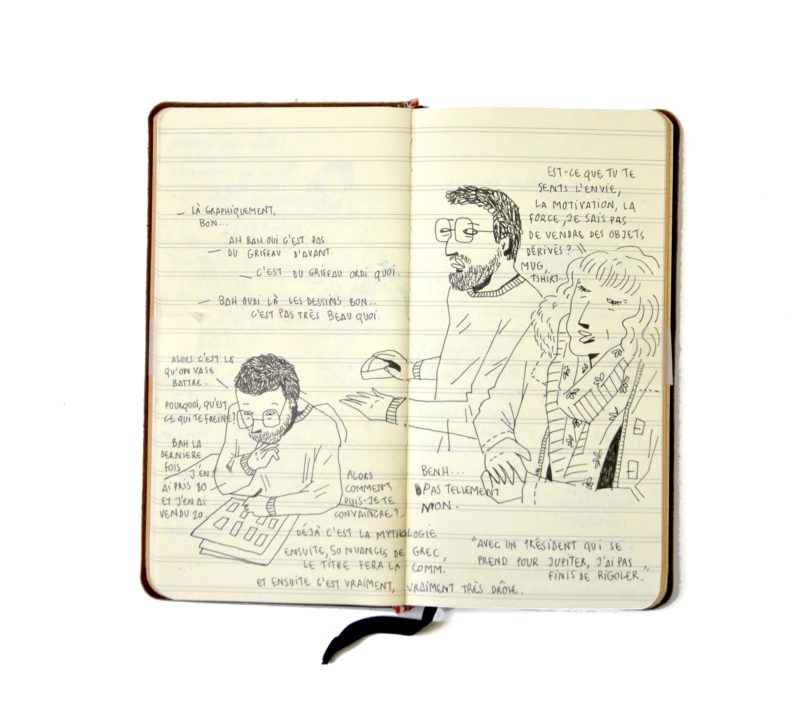 — LÀ GRAPHIQUEMENT,
BON...
AH BAH OUI C'EST PAS
DU GRIFFAU D'AVANT.
— C'EST DU GRIFFAU ORDI QUOI.
— BAH OUAI LÀ LES DESSINS BON...
C'EST PAS TRÈS BEAU QUOI.
ALORS C'EST LÀ
QU'ON VA SE
BATTRE.
POURQUOI, QU'EST
CE QUI TE FREINE?
BAH LA
DERNIERE
FOIS
J'EN
AI PRIS 80
ET J'EN AI
VENDU 20.
ALORS
COMMENT
PUIS-JE TE
CONVAINCRE?..
DÉJÀ C'EST LA MYTHOLOGIE
ENSUITE, 50 NUANCES DE GREC,
LE TITRE FERA LA COMM.
ET ENSUITE C'EST VRAIMENT, VRAIMENT TRÈS DRÔLE.
EST-CE QUE TU TE
SENTS L'ENVIE,
LA MOTIVATION, LA
FORCE, JE SAIS PAS
DE VENDRE DES OBJETS
DÉRIVÉS?
MUG,
TSHIRT...
BENH...
PAS TELLEMENT
NON.
"AVEC UN PRÉSIDENT QUI SE
PREND POUR JUPITER, J'AI PAS
FINIS DE RIGOLER."